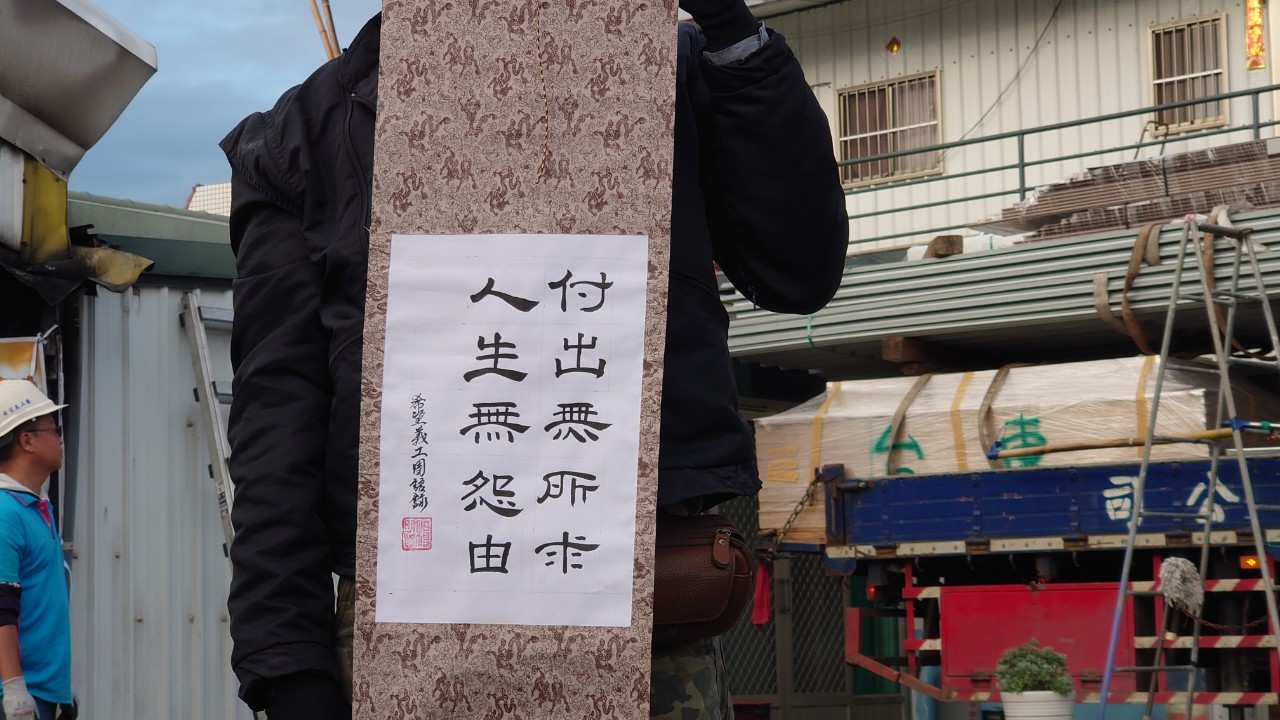 付出無所求
人生無怨由
希望義工團
公司